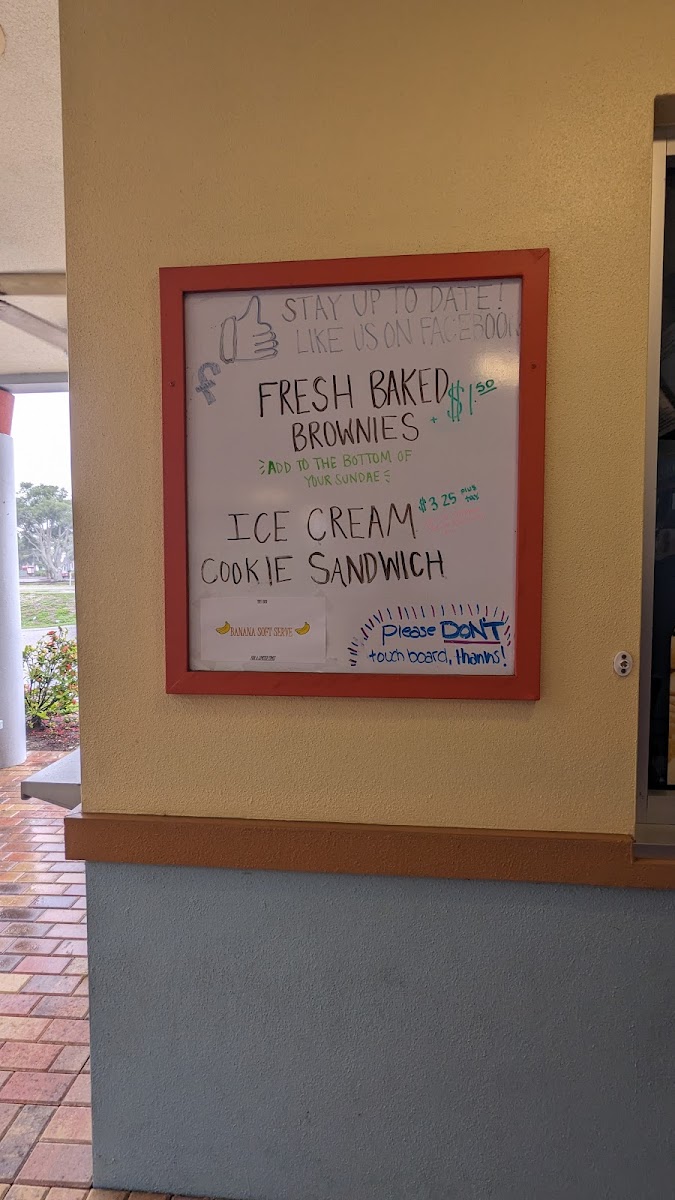 STAY UP TO DATE!
LIKE US ON FACEBOOK
f
FRESH BAKED
BROWNIES
+ $1.50
ADD TO THE BOTTOM OF
YOUR SUNDAE
ICE CREAM
$3.25 PLUS TAX
COOKIE SANDWICH
BANANA SOFT SERVE
FOR A LIMITED TIME!
please DON'T
touch board, thanks!